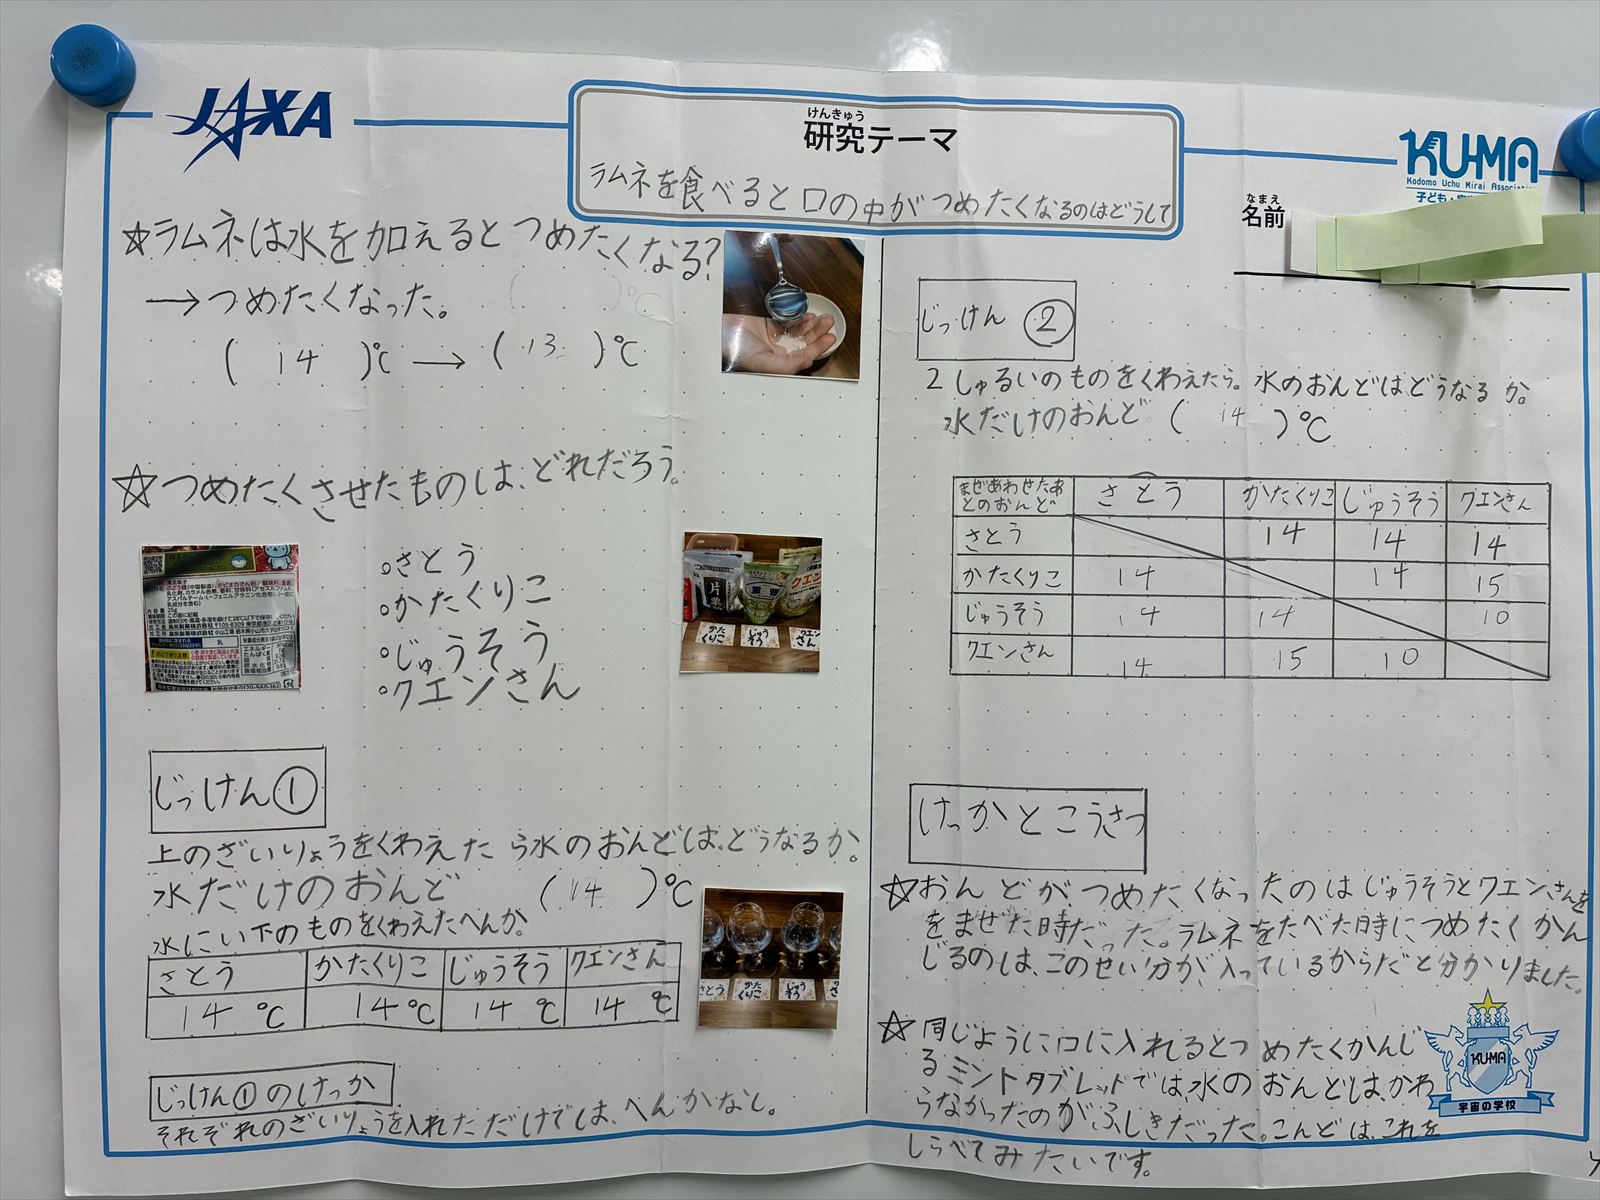 JAXA
けんきゅう
研究テーマ
ラムネを食べると口の中がつめたくなるのはどうして
KUMA
Kodomo Uchu Mirai Association
なまえ
名前
☆ラムネは水を加えるとつめたくなる?
→つめたくなった。
( 14 )℃→( 13 )℃
☆つめたくさせたものは、どれだろう。
25g
。さとう
。かたくりこ
。じゅうそう
。クエンさん
片栗
重曹
クエン
かたくりこ
じゅうそう
クエンさん
じっけん①
上のざいりょうをくわえたら水のおんどは、どうなるか。
水だけのおんど ( 14 )℃
水にい下のものをくわえたへんか。
さとう かたくりこ じゅうそう クエンさん
14 ℃ 14 ℃ 14 ℃ 14 ℃
さとう
かたくりこ
じゅうそう
じっけん①のけっか
それぞれのざいりょうを入れただけでは、へんかなし。
じっけん②
2しゅるいのものをくわえたら。水のおんどはどうなるか。
水だけのおんど ( 14 )℃
まぜあわせたあとのおんど さとう かたくりこ じゅうそう クエンさん
さとう 14 14 14
かたくりこ 14 14 15
じゅうそう 14 14 10
クエンさん 14 15 10
けっかとこうさつ
☆おんどがつめたくなったのはじゅうそうとクエンさんを
をまぜた時だった。ラムネをたべた時につめたくかん
じるのは、このせい分が入っているからだと分かりました。
☆同じように口に入れるとつめたくかんじ
るミントタブレッドでは、水のおんどは、かわ
らなかったのがふしぎだった。こんどは、これを
しらべてみたいです。
KUMA
宇宙の学校